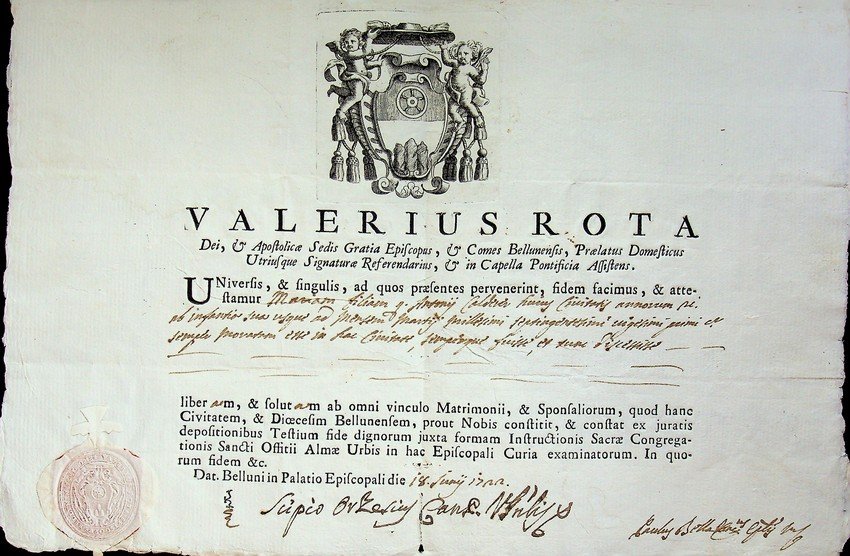 VALERIUS ROTA
Dei, & Apostolicæ Sedis Gratia Episcopus, & Comes Bellunensis, Prælatus Domesticus
Utriusque Signaturæ Referendarius, & in Capella Pontificia Assistens.
UNiversis, & singulis, ad quos præsentes pervenerint, fidem facimus, & atte-
stamur Mariam filiam q. Antonij huius Civitatis annorum
ab infantia sua usque ad Mensem Martij millesimi septingentesimi vigesimi primi
semper moratam esse in hac Civitate, semperque fuisse, et tunc discessisse
liberam, & solutam ab omni vinculo Matrimonii, & Sponsaliorum, quod hanc
Civitatem, & Diœcesim Bellunensem, prout Nobis constitit, & constat ex juratis
depositionibus Testium fide dignorum juxta formam Instructionis Sacræ Congrega-
tionis Sancti Offitii Almæ Urbis in hac Episcopali Curia examinatorum. In quo-
rum fidem &c.
Dat. Belluni in Palatio Episcopali die 18. Junij 1722.
Scipio Canc.
Paulus